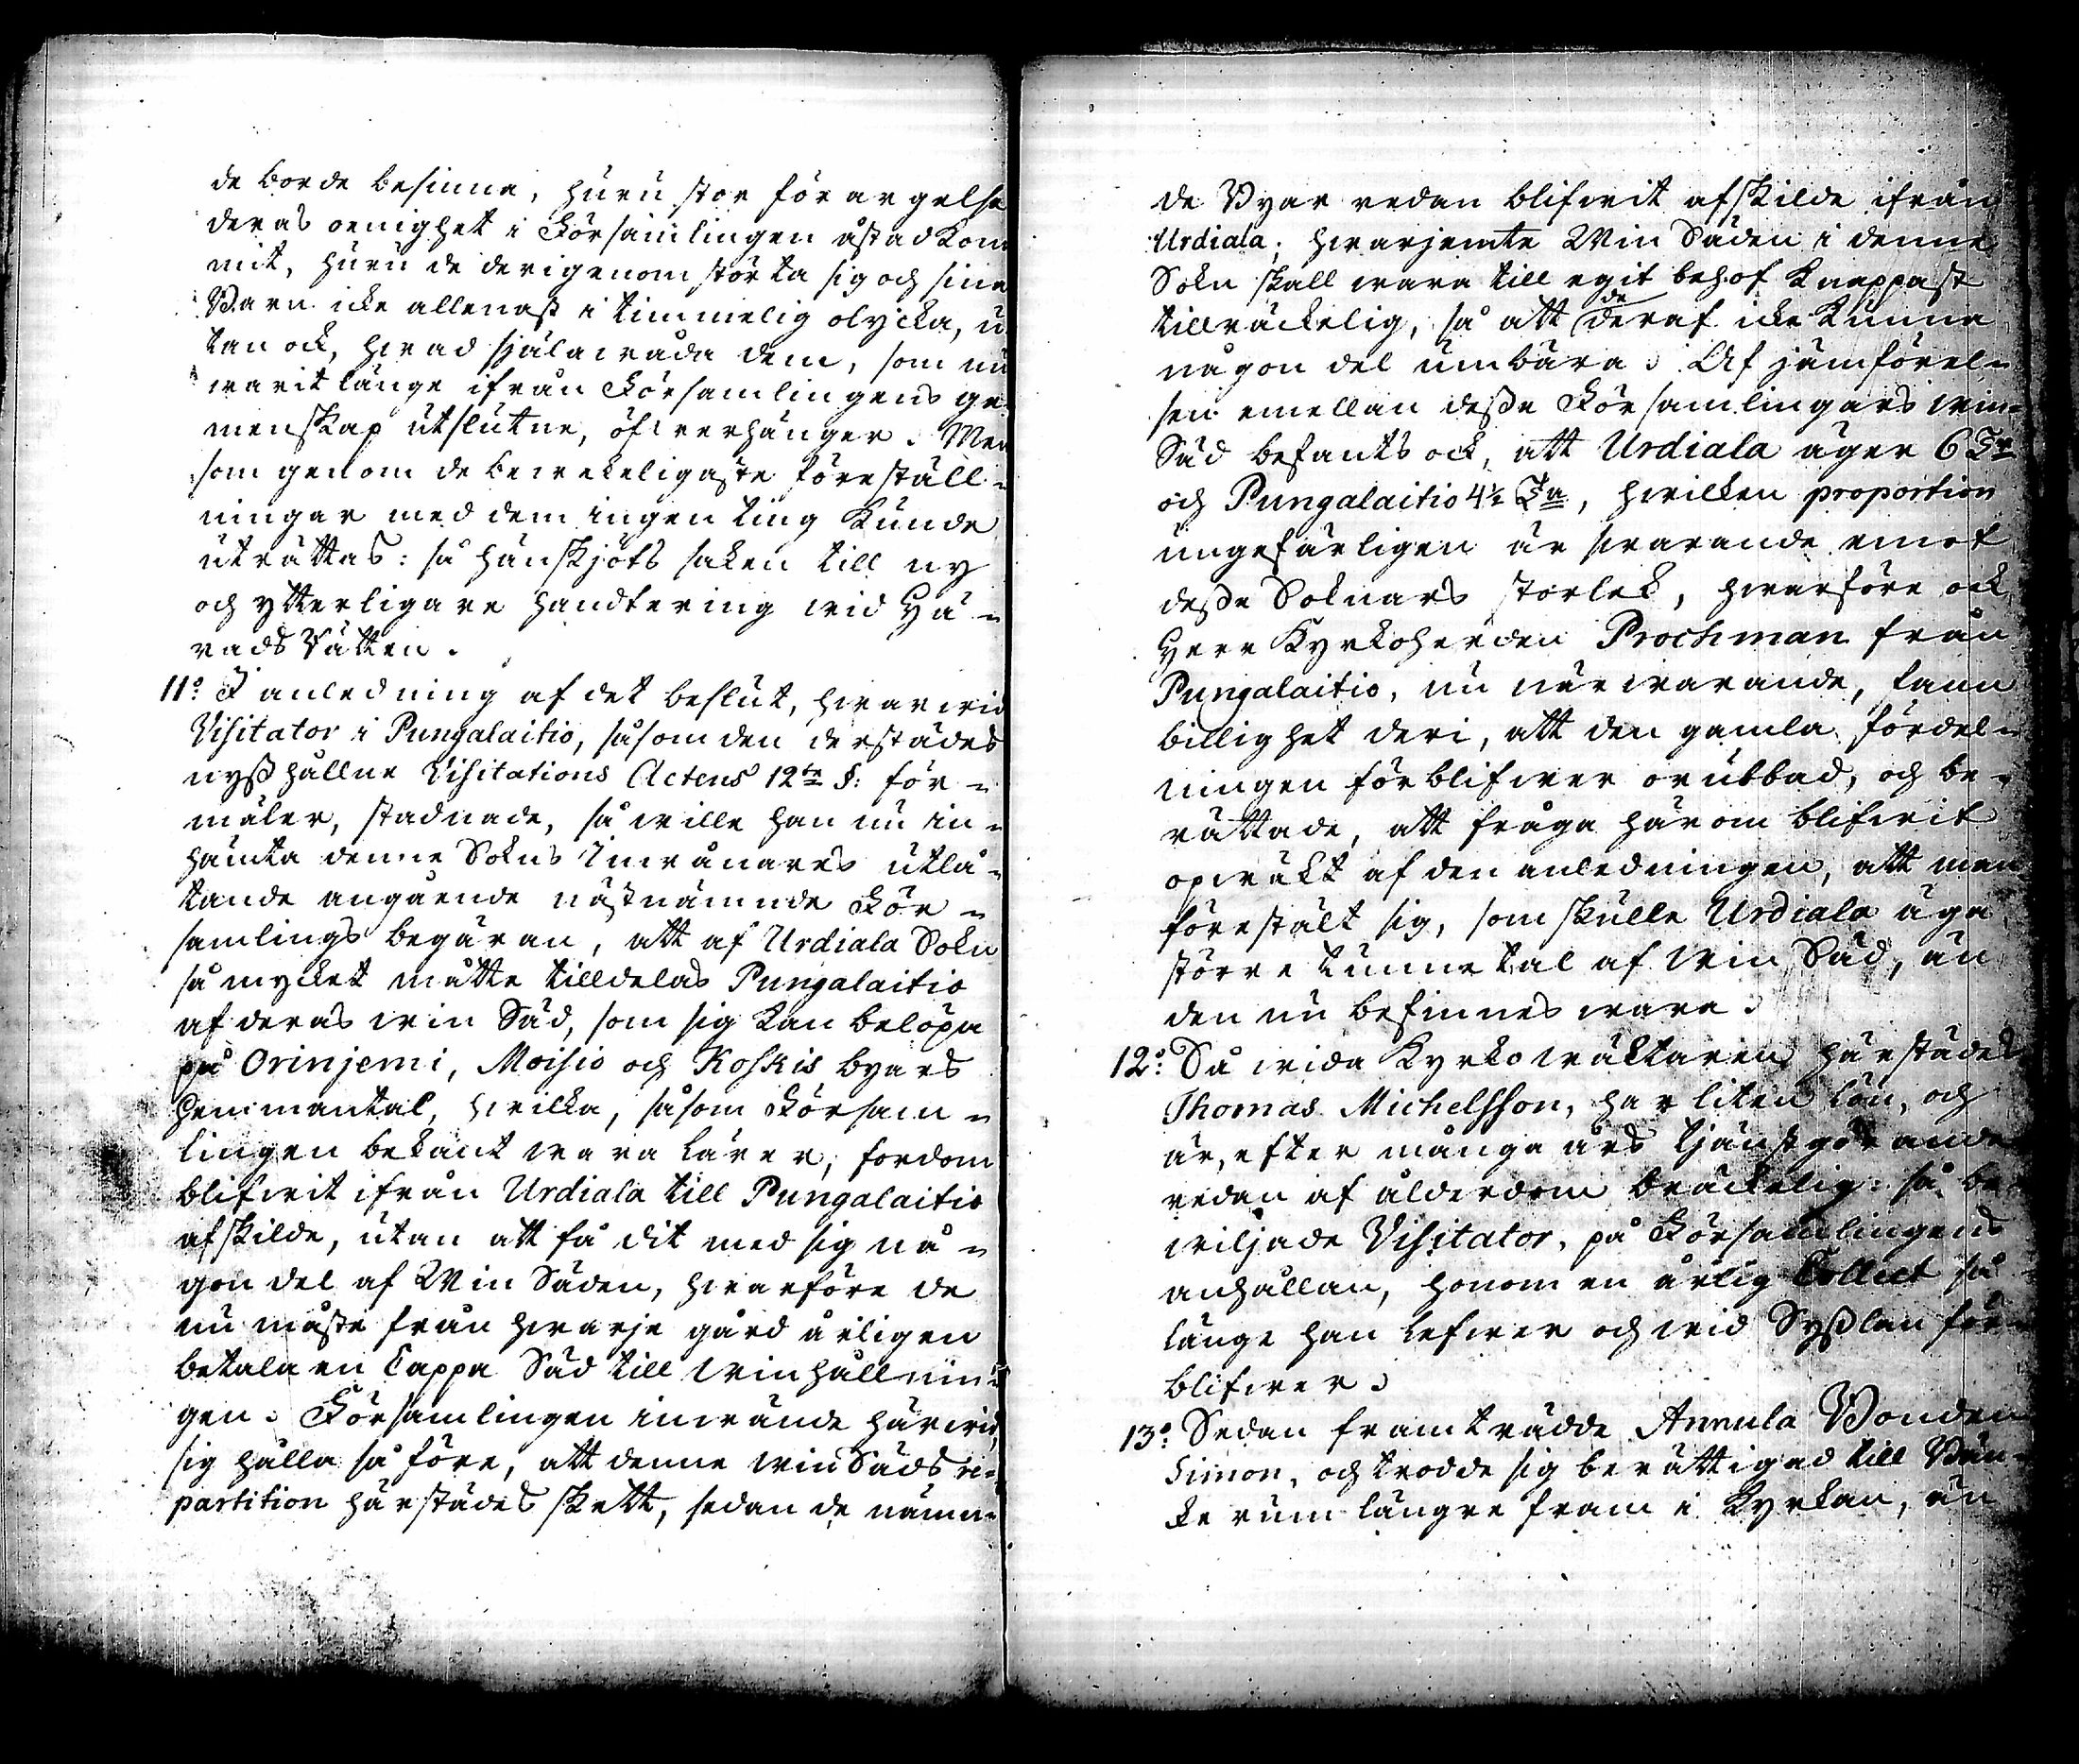 de borde besinna, huru stor förargelse
deras oenighet i Församlingen åstadkom
mit, huru de derigenom störta sig och sina
Barn icke allenast i timmelig olycka, u
tan ock, hvad själavåda dem, som nu
varit länge ifrån Församlingens ge
menskap utslutne, öfverhänger. Men
som genom de bevekeligaste föreställ-
ningar med dem ingen ting kunde
uträttas: så hänskjöts saken till ny
och ytterligare handtering vid Hä-
rads Rätten.
11º: I anledning af det beslut, hvarvid
Visitator i Pungalaitio, såsom den derstädes
nyss hållne Visitations Actens 12te §: för-
mäler, stadnade, så ville han nu in-
hämta denne Sokns Invånares utlå-
tande angående nästnämnde För-
samlings begäran, att af Urdiala Sokn
så mycket måtte tilldelas Pungalaitio
af deras vin Säd, som sig kan belöpa
på Orinjemi, Moisio och Koskis byars
Hemmantal, hvilka, såsom Församl-
lingen bekant vara lärer, fordom
blifvit ifrån Urdiala till Pungalaitio
afskilde, utan att få dit med sig nå-
gon del af Vin Säden, hvarföre de
nu måste från hvarje gård årligen
betala en Cappa Säd till vinhållnin-
gen. Församlingen invände härvid,
sig hålla så före, att denne vin Säds re-
partition härstädes skett, sedan de nämn-
de Byar redan blifvit afskilde ifrån
Urdiala; hvarjemte Vin Säden i denne
Sokn skall vara till egit behof knappast
tillräckelig, så att de deraf icke kunna
någon del umbära. Af jämförel-
sen emellan desse Församlingars vin-
Säd befants ock, att Urdiala äger 6 Tr
och Pungalaitio 4½ Ta, hvilken proportion
ungefärligen är svarande emot
desse Soknars storlek, hvarföre ock
Herr Kyrkoherden Prochman från
Pungalaitio, nu närvarande, fann
billighet deri, att den gamla fördel-
ningen förblifver orubbad, och be-
rättade, att fråga härom blifvit
opväkt af den anledningen, att man
förestält sig, som skulle Urdiala äga
större tunnetal af vin Säd, än
den nu befinnes vara.
12º: Så vida Kyrkoväktaren härstädes
Thomas Michelsson, har liten lön, och
är, efter många års tjänstgörande
redan af ålderdom bräckelig: så be-
viljade Visitator, på Församlingens
anhållan, honom en årlig Collect så
länge han lefver och vid Sysslan för-
blifver.
13º: Sedan framträdde Annula Bonden
Simon, och trodde sig berättigad till Bän-
ke rum längre fram i Kyrkan, än